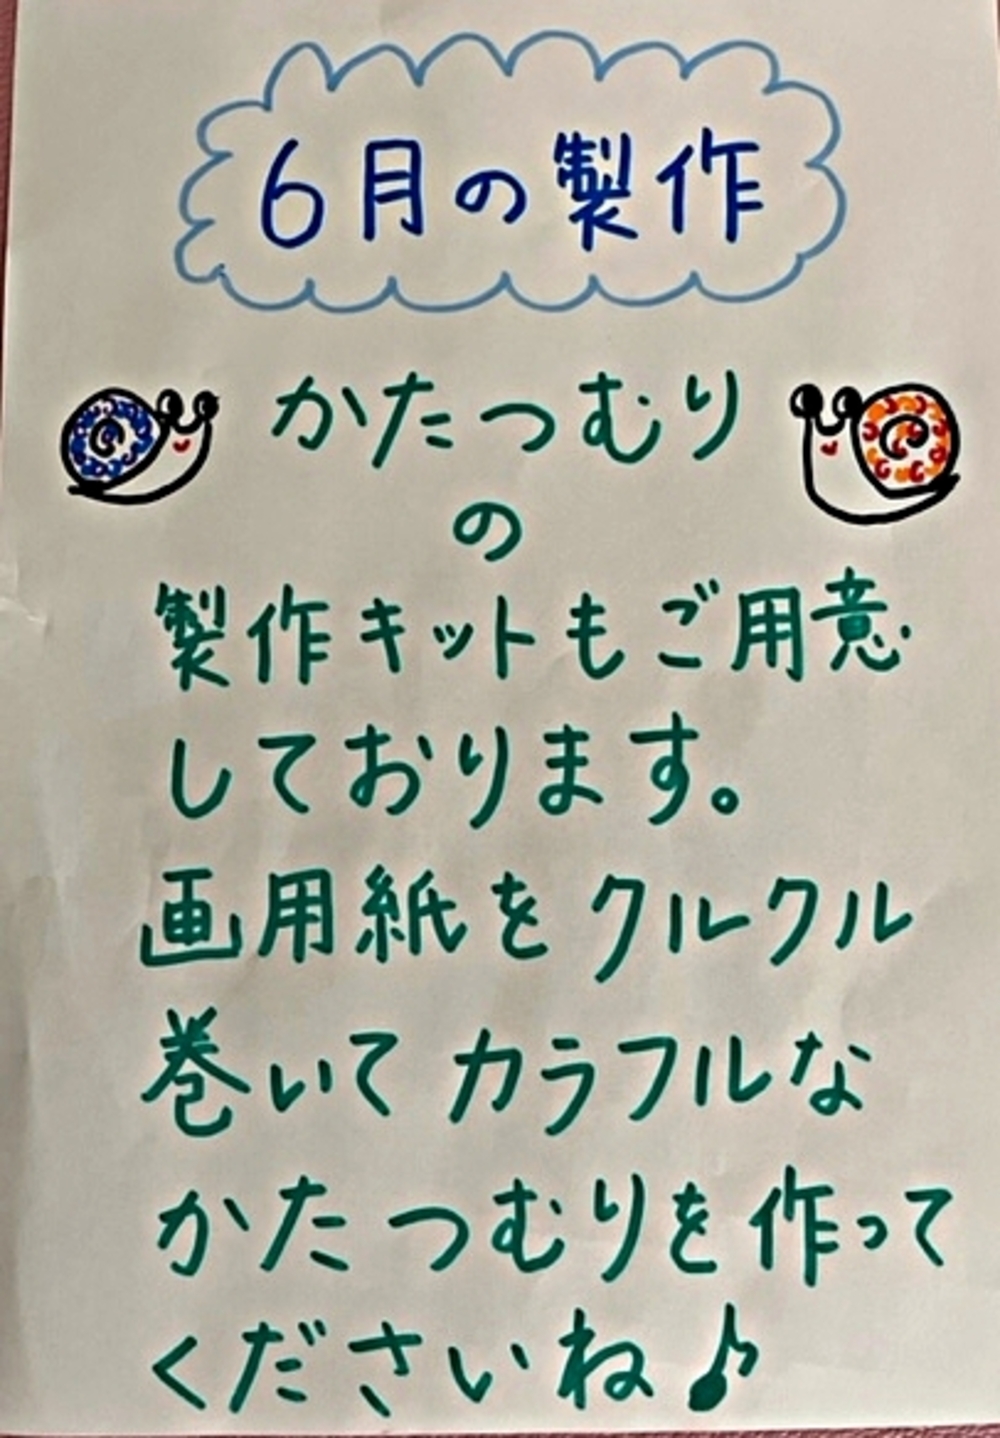 6月の製作
かたつむり
の
製作キットもご用意
しております。
画用紙をクルクル
巻いてカラフルな
かたつむりを作って
くださいね♪